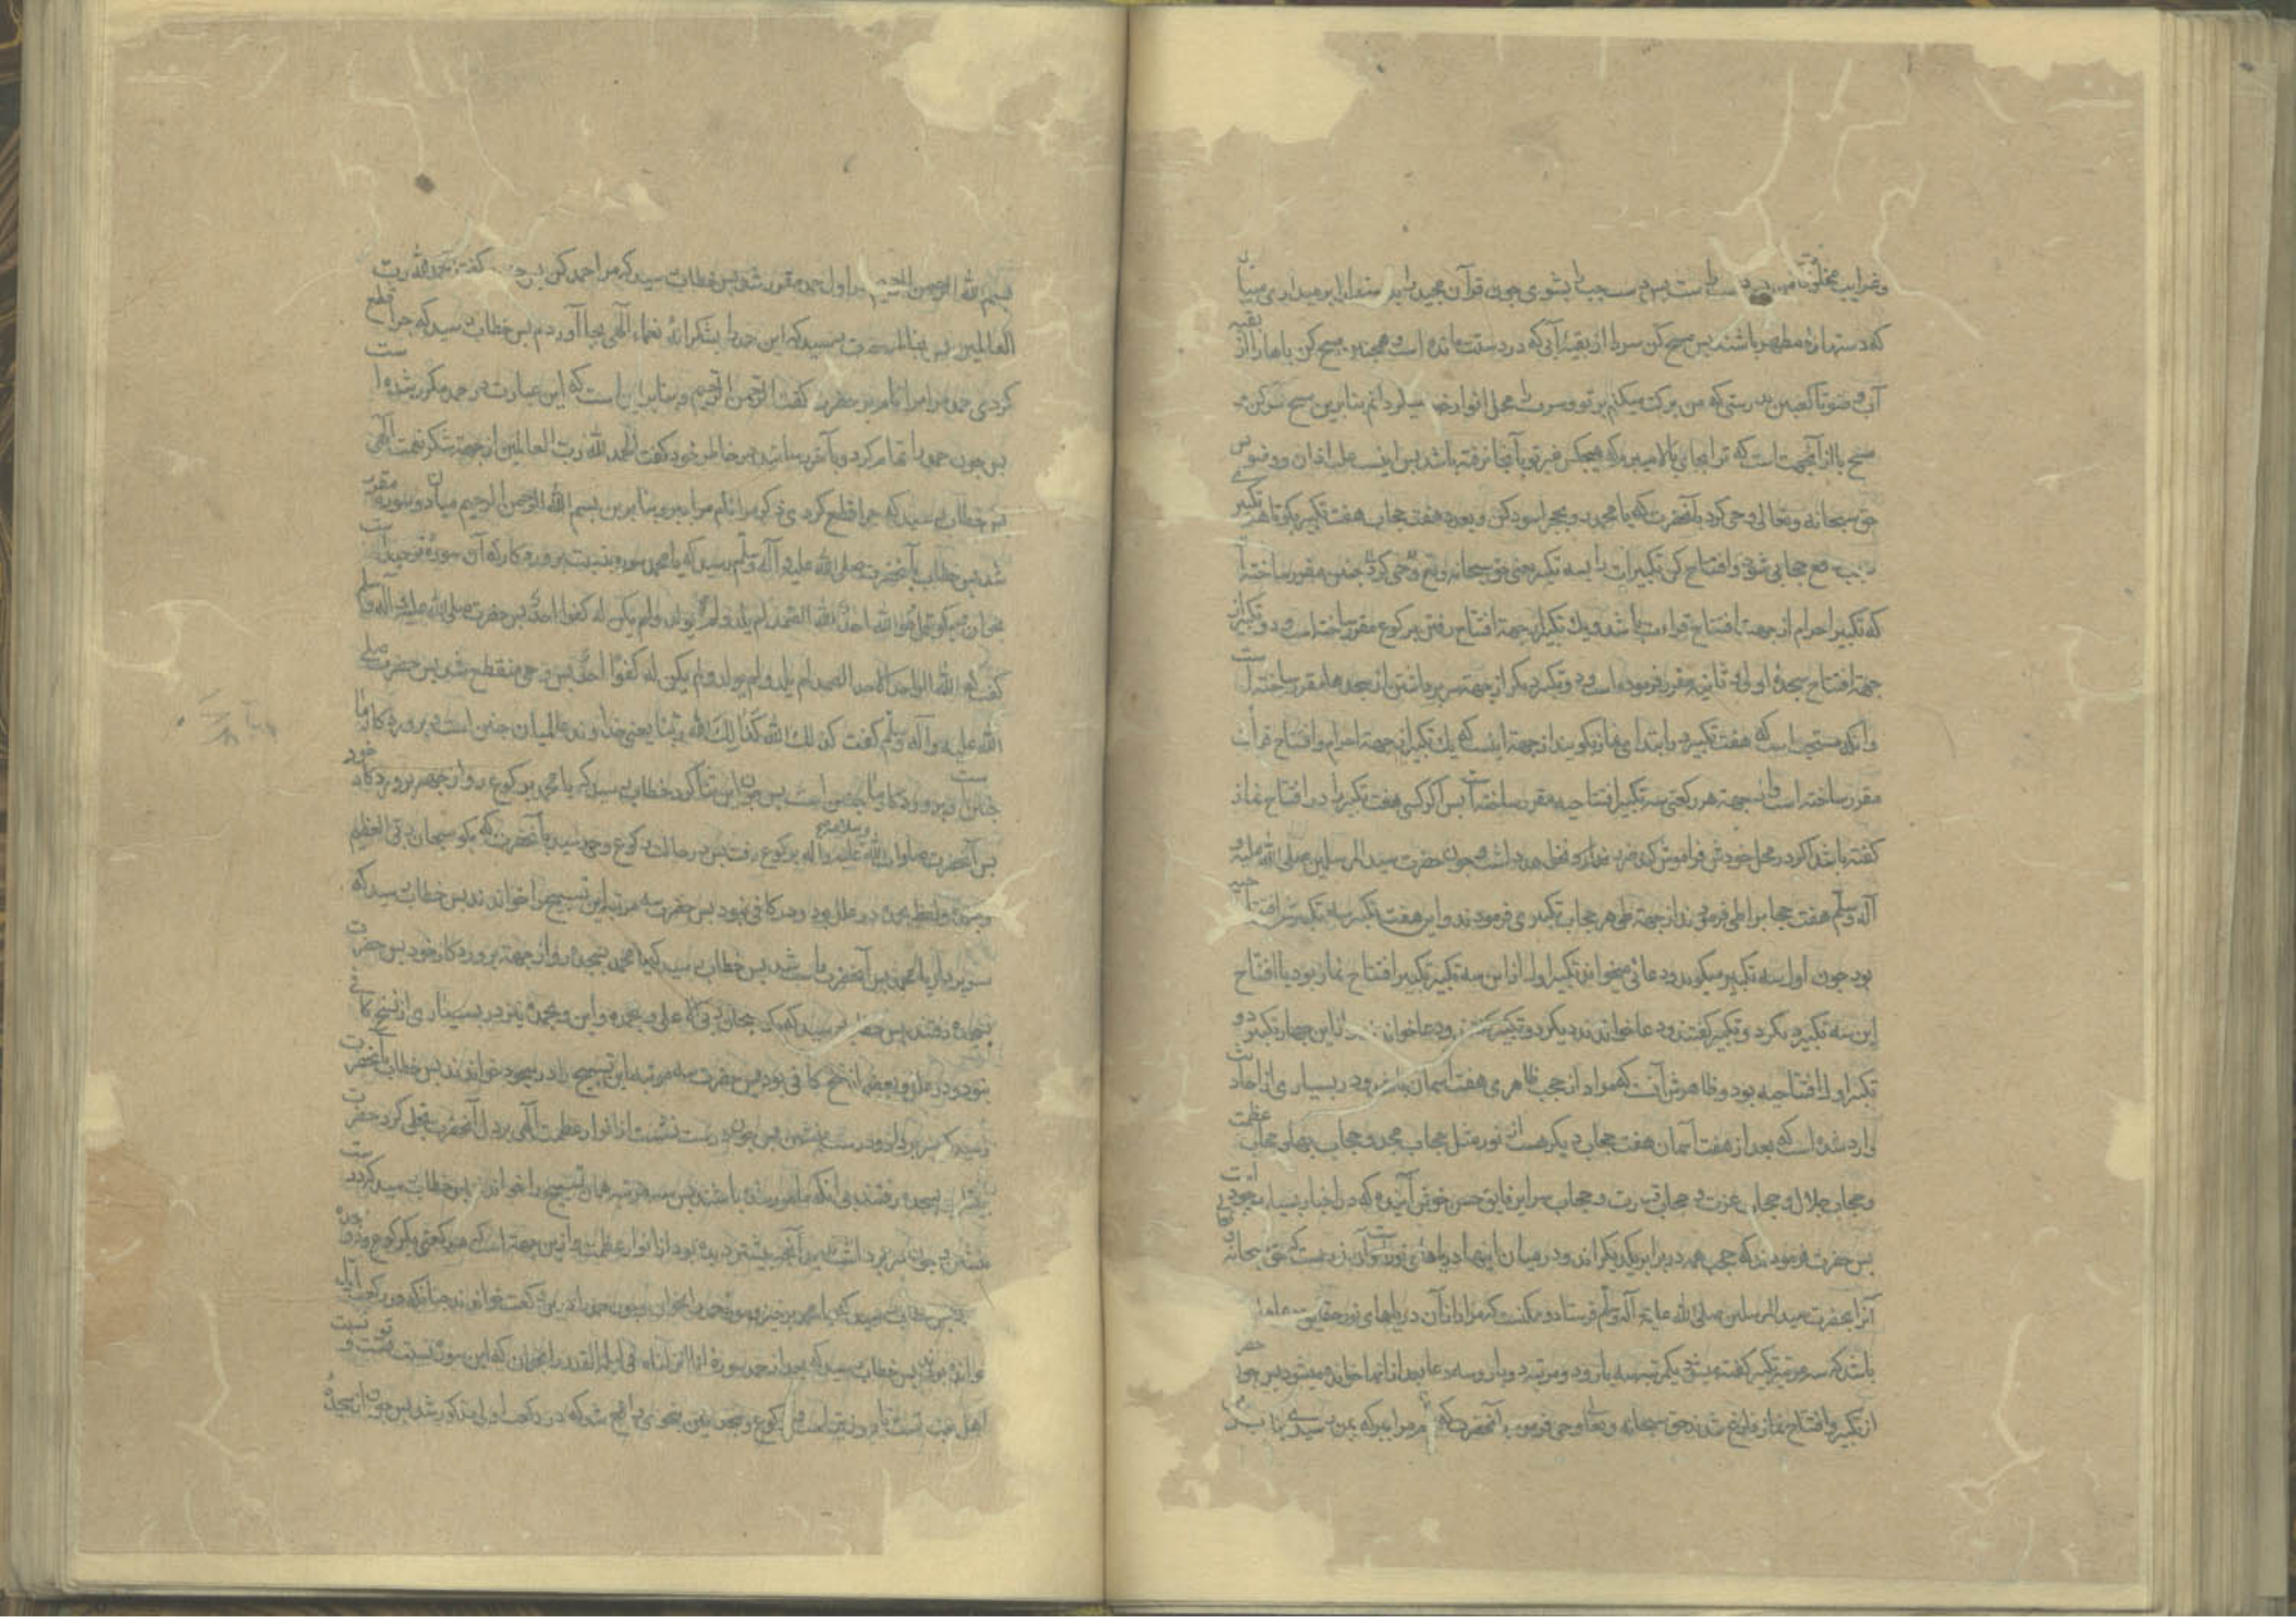 وغرایب مخلوقات من پس دست راست و دست چپ را بشوی چون قرآن مجید را بر میداری میباید
که دستها پاره مطهر باشند پس مسح کن سر را از بقیه آبی که در دستت مانده است و همچنین مسح کن پاها را از بقیه
آب وضو تا کعبین بدرستی که من برکت میکنم بر تو و سرت محل انوار خود میگردانم بنابرین مسح سر کن و
مسح پا از آنجهت است که ترا بجایی بالا میبرم که هیچکس غیر تو بآنجا نرفته باشد پس اینست علت اذان و وضو پس
حق سبحانه وتعالی وحی کرد بآنحضرت که یا محمد رو بحجر اسود کن و بعدد هفت حجاب هفت تکبیر بگو تا هر تکبیر
رفع حجابی شود و افتتاح کن تکبیرات را بسه تکبیر یعنی حق سبحانه وتعالی وحی کرد چنین مقرر ساخته
که تکبیر احرام از جهة افتتاح قراءت باشد و یک تکبیر از جهة افتتاح رفتن برکوع مقرر ساخته است و دو تکبیر از
جهة افتتاح سجدۀ اولی و ثانیه مقرر فرموده است و دو تکبیر دیگر از جهة سر برداشتن از سجدها مقرر ساخته است
وانکه مستحب است که هفت تکبیر در ابتدای نماز بگویند از جهة اینست که یک تکبیر از جهة احرام و افتتاح قرأت
مقرر ساخته است و از جهة هر رکعتی سه تکبیر افتتاحیه مقرر ساخته است پس اگر کسی هفت تکبیر را در افتتاح نماز
گفته باشد اگر در محل خودش فراموش کند ضرر ندارد و چون حضرت سید المرسلین صلی الله علیه و
آله وسلم هفت حجاب را طی فرمودند از جهة طی هر حجاب تکبیری فرمودند و این هفت تکبیر سه تکبیرش افتتاحیه
بود چون اول سه تکبیر میگویند و دعائی میخوانند تکبیر اول از این سه تکبیر تکبیر افتتاح نماز بود یا افتتاح
این سه تکبیر دیگر دو تکبیر گفتند و دعا خواندند دیگر دو تکبیر گفتند و دعا خواندند از این چهار تکبیر دو
تکبیر اول افتتاحیه بود و ظاهرش آنست که مراد از حجب ظاهری هفت آسمان باشد و در بسیاری از احادیث
وارد شده است که بعد از هفت آسمان هفت حجاب دیگر هست از نور مثل حجاب مجد و حجاب بها و حجاب عظمت
وحجاب جلال و حجاب عزت و حجاب قدرت و حجاب سرایر فایق حسن خوش آینده که در اخبار بسیار
پس حضرت فرمودند که حجب همه در برابر یکدیگراند و در میان اینها دریاهای نورست و آن نوریست که حق سبحانه
آنرا بحضرت سید المرسلین صلی الله علیه وآله وسلم فرستاد و ممکنست که مراد از آن دریاهای نور حقایق
باشد که سه مرتبه تکبیر گفته میشود یکمرتبه سه بار و دو مرتبه دو بار و سه دعا بعد از آنها خوانده میشود پس چون
از تکبیر و افتتاح نماز فارغ شدند حق سبحانه وتعالی وحی فرمود بآنحضرت که نام مرا ببر که بمن رسیدی بنابرین
بسم الله الرحمن الرحیم در اول حمد مقرر شد پس خطاب رسید که مرا حمد کن پس حضرت گفتند الحمد لله رب
العالمین پس بخاطر حضرت رسید که این حمد را بشکرانۀ نعماء الهی بجا آوردم پس خطاب رسید که چرا قطع
کردی حمد مرا مرا نام بر حضرت گفت الرحمن الرحیم و بنابراین است که این عبارت در حمد مکرر شده است
پس چون حمد را تمام کرد و بآخر رسانید در خاطر خود گفت الحمد لله رب العالمین از جهة شکر نعمت الهی
پس خطاب رسید که چرا قطع کردی ذکر مرا نام مرا ببر و بنابرین بسم الله الرحمن الرحیم میان دو سوره مقرر
شد پس خطاب بآنحضرت صلی الله علیه وآله وسلم رسید که یا محمد سوره نسبت پروردکار که آن سوره توحید است
بخوان و بگو قل هو الله احد الله الصمد لم یلد ولم یولد ولم یکن له کفوا احد پس حضرت صلی الله علیه وآله وسلم
گفت الله الواحد الاحد الصمد لم یلد ولم یولد ولم یکن له کفوا احد پس وحی منقطع شد پس حضرت صلی
الله علیه وآله وسلم گفت کذلک الله کذلک الله ربنا یعنی خداوند عالمیان چنین است و پروردکار ما
چنین است پروردکار ما چنین است پس چون این ثنا کرد خطاب رسید که یا محمد برکوع رو از جهة پروردکار خود
پس آنحضرت صلوات الله وسلامه علیه وآله برکوع رفت پس در حالت رکوع وحی رسید بآنحضرت که بگو سبحان ربی العظیم
وبحمده ولفظ بحمده در علل بود و در کافی نبود پس حضرت سه مرتبه این تسبیح را خواندند پس خطاب رسید که
سر بردار یا محمد پس آنحضرت راست شد پس خطاب رسید که یا محمد بسجده رو از جهة پروردکار خود پس حضرت
بسجده رفتند پس خطاب رسید که بگو سبحان ربی الاعلی وبحمده و این وبحمده نیز در بسیاری از نسخ کافی
نبود و در علل و بعضی از نسخ کافی بود پس حضرت سه مرتبه این تسبیح را در سجود خواندند پس خطاب بآنحضرت
رسید که سر بردار و درست بنشین پس چون درست نشست از انوار عظمت الهی بر دل آنحضرت تجلی کرد حضرت
بسجده رفتند بی آنکه مامور شده باشند پس سه مرتبه همان تسبیح را خواندند پس خطاب رسید که درست
بنشین و چون سر برداشت ندید آنچه پیشتر دیده بود از انوار عظمت و ازین جهة است که هر رکعتی یک رکوع و دو سجده
پس خطاب رسید که یا محمد برخیز و سوره حمد را بخوان و چون حمد را در این رکعت خواندند چنانکه در رکعت اول
خوانده بودند پس خطاب رسید که بعد از حمد سورۀ انا انزلناه فی لیلة القدر را بخوان که این سوره نسبت تست و نسبت
اهل بیت تست تا روز قیامت پس رکوع و سجود بهمین نحوی واقع شد که در رکعت اولی مذکور شد پس چون از سجده